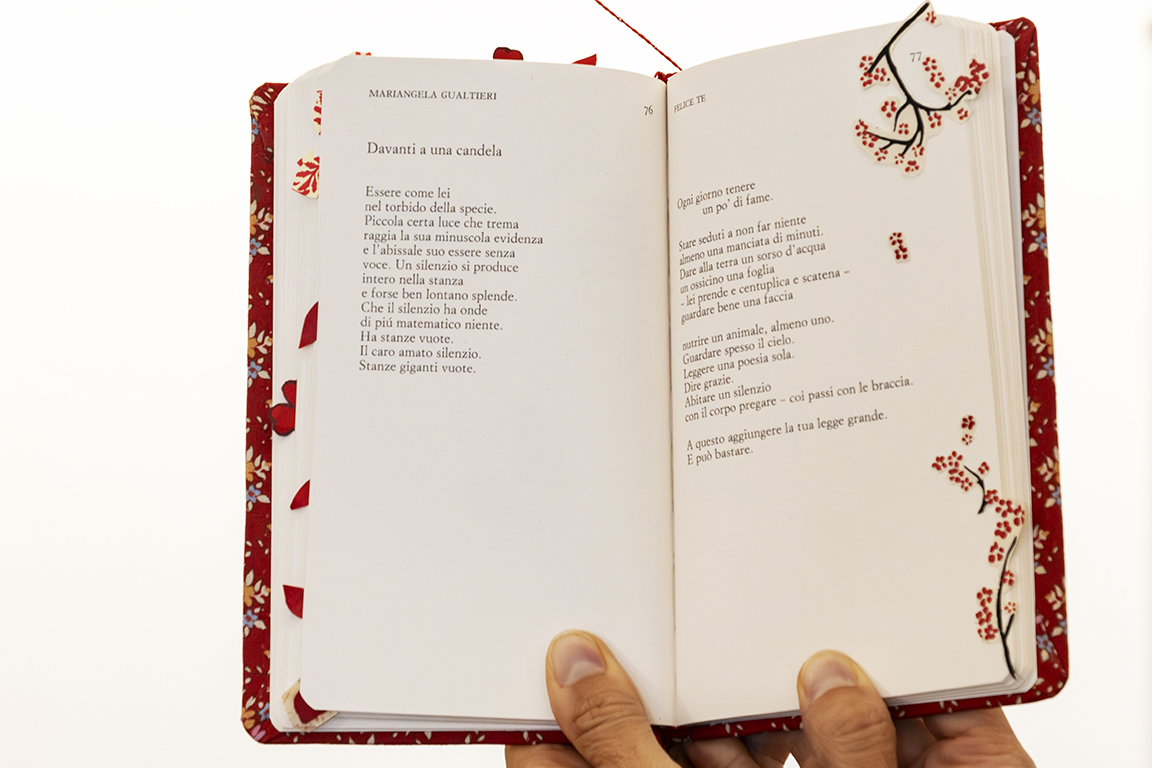 MARIANGELA GUALTIERI
76
Davanti a una candela
Essere come lei
nel torbido della specie.
Piccola certa luce che trema
raggia la sua minuscola evidenza
e l'abissale suo essere senza
voce. Un silenzio si produce
intero nella stanza
e forse ben lontano splende.
Che il silenzio ha onde
di piú matematico niente.
Ha stanze vuote.
Il caro amato silenzio.
Stanze giganti vuote.
FELICE TE
77
Ogni giorno tenere
un po' di fame.
Stare seduti a non far niente
almeno una manciata di minuti.
Dare alla terra un sorso d'acqua
un ossicino una foglia
– lei prende e centuplica e scatena –
guardare bene una faccia
nutrire un animale, almeno uno.
Guardare spesso il cielo.
Leggere una poesia sola.
Dire grazie.
Abitare un silenzio
con il corpo pregare – coi passi con le braccia.
A questo aggiungere la tua legge grande.
E può bastare.